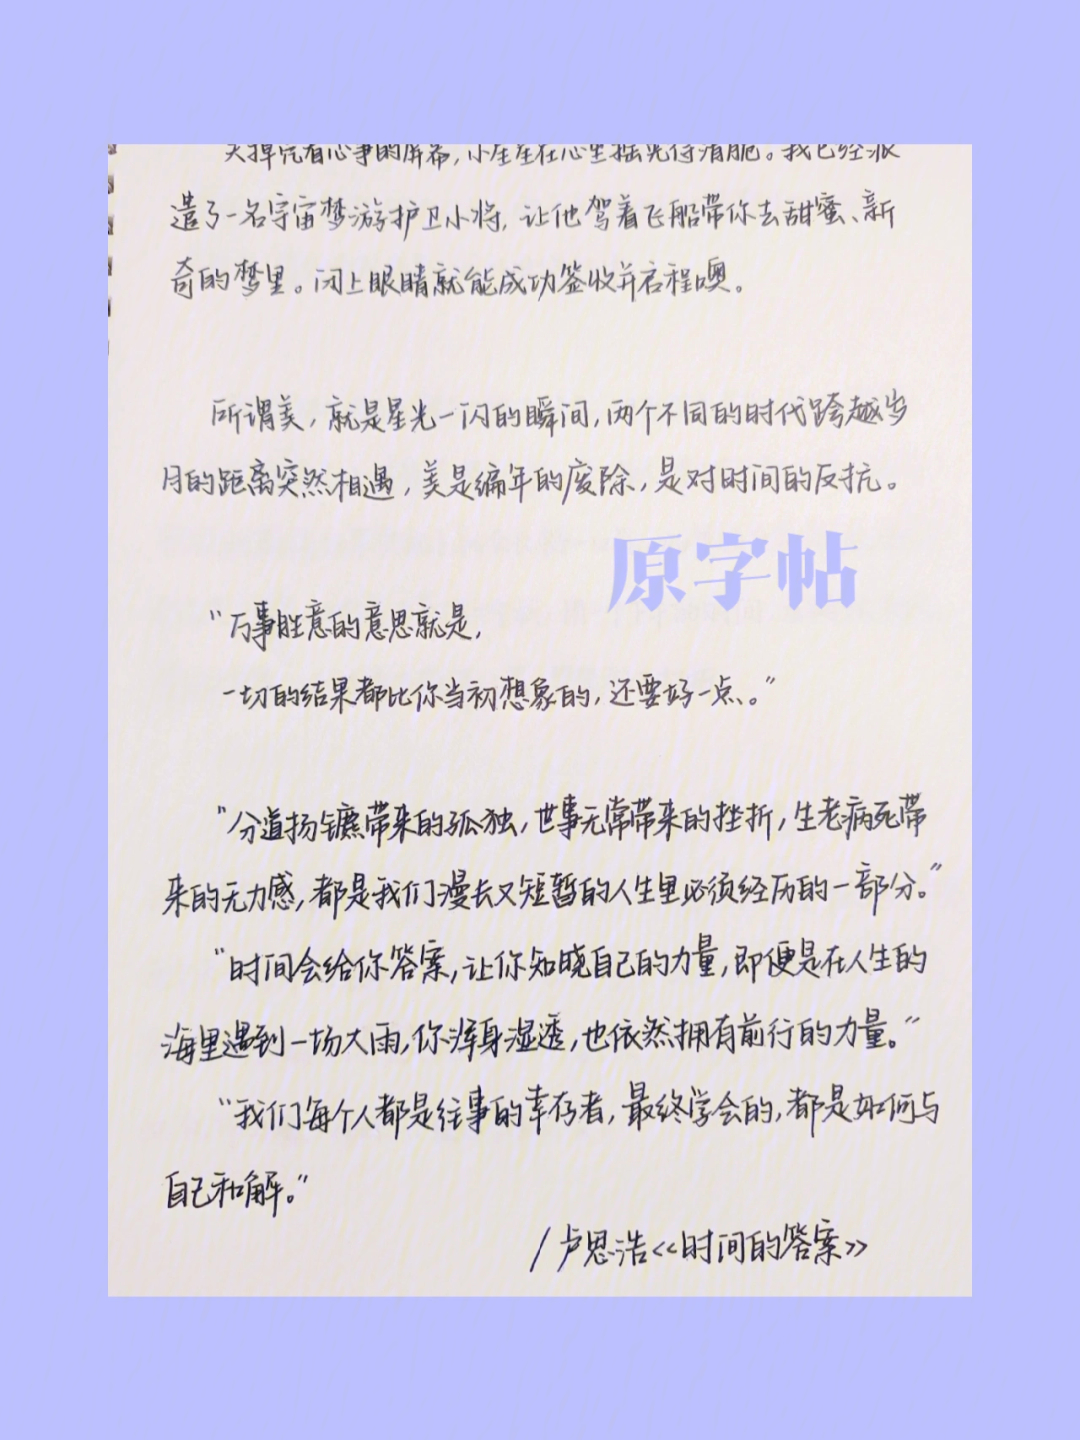 关掉亮着心事的屏幕,小星星在心里摇晃得清脆。我已经派
遣了一名宇宙梦游护卫小将,让他驾着飞船带你去甜蜜、新
奇的梦里。闭上眼睛就能成功签收并启程噢。
所谓美,就是星光一闪的瞬间,两个不同的时代跨越岁
月的距离突然相遇,美是编年的废除,是对时间的反抗。
原字帖
“万事胜意的意思就是,
一切的结果都比你当初想象的,还要好一点、。”
“分道扬镳带来的孤独,世事无常带来的挫折,生老病死带
来的无力感,都是我们漫长又短暂的人生里必须经历的一部分。”
“时间会给你答案,让你知晓自己的力量,即便是在人生的
海里遇到一场大雨,你浑身湿透,也依然拥有前行的力量。”
“我们每个人都是往事的幸存者,最终学会的,都是如何与
自己和解。”
/卢思浩<<时间的答案>>